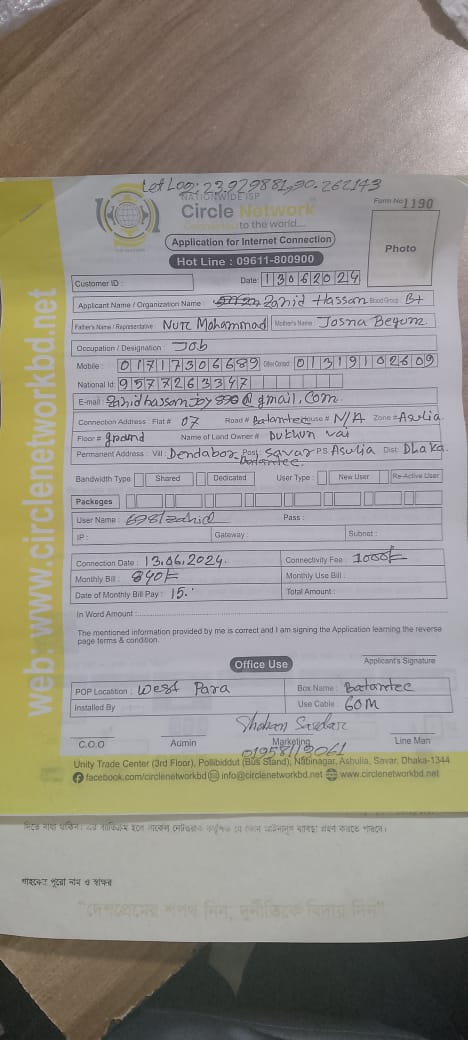 Lat Log: 23.929881,90.262143
NATIONWIDE ISP
Form No 1190
Circle Network
Connected to the world...
Application for Internet Connection
Photo
Hot Line : 09611-800900
Customer ID :
Date: 13062024
Applicant Name / Organization Name : Zahid Hassan Blood Group: B+
Father's Name / Representative : Nur Mohammad Mother's Name : Josna Begum.
Occupation / Designation : Job
Mobile : 01717306689 Office Contact : 01319102609
National Id: 9577263347
E-mail : @gmail.com
Connection Address : Flat # 07 Road # Batantec House # N/A Zone # Asulia
Floor # ground Name of Land Owner # Duklun vai
Permanent Address : Vill : Dendabor Post: Savar PS Asulia Dist: Dhaka.
Batantec
Bandwidth Type Shared Dedicated User Type : New User Re-Active User
Packeges
User Name : Pass :
IP : Gateway : Subnet :
Connection Date : 13.06.2024. Connectivity Fee : 1000/-
Monthly Bill : 840/- Monthly Use Bill :
Date of Monthly Bill Pay : 15. Total Amount :
In Word Amount :
The mentioned information provided by me is correct and I am signing the Application learning the reverse
page terms & condition.
Office Use
Applicant's Signature
POP Location : West Para Box Name : Batantec
Installed By Use Cable 60M
C.O.O Admin Marketing Line Man
Unity Trade Center (3rd Floor), Pollibiddut (Bus Stand), Nabinagar, Ashulia, Savar, Dhaka-1344
facebook.com/circlenetworkbd info@circlenetworkbd.net www.circlenetworkbd.net
web: www.circlenetworkbd.net
গ্রাহকের পুরো নাম ও স্বাক্ষর
"দেশপ্রেমের শপথ নিন, দুর্নীতিকে বিদায় দিন"